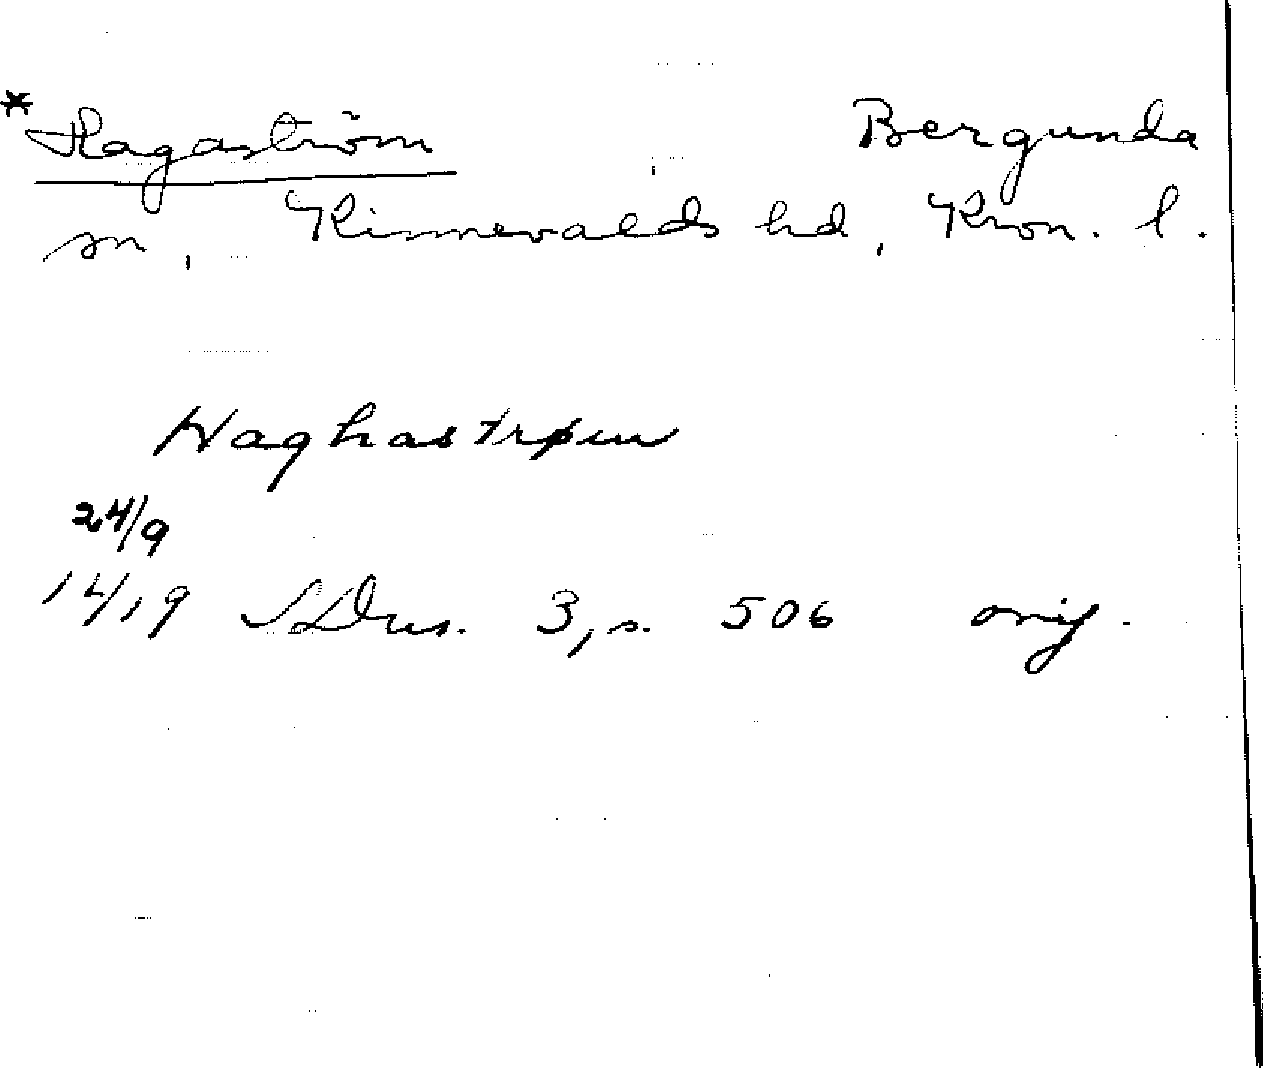 * Hagaström Bergunda
sn, Kinnevalds hd, Kron. l.
Haghastrøm
24/9
1419 SDns. 3, s. 506 orig.